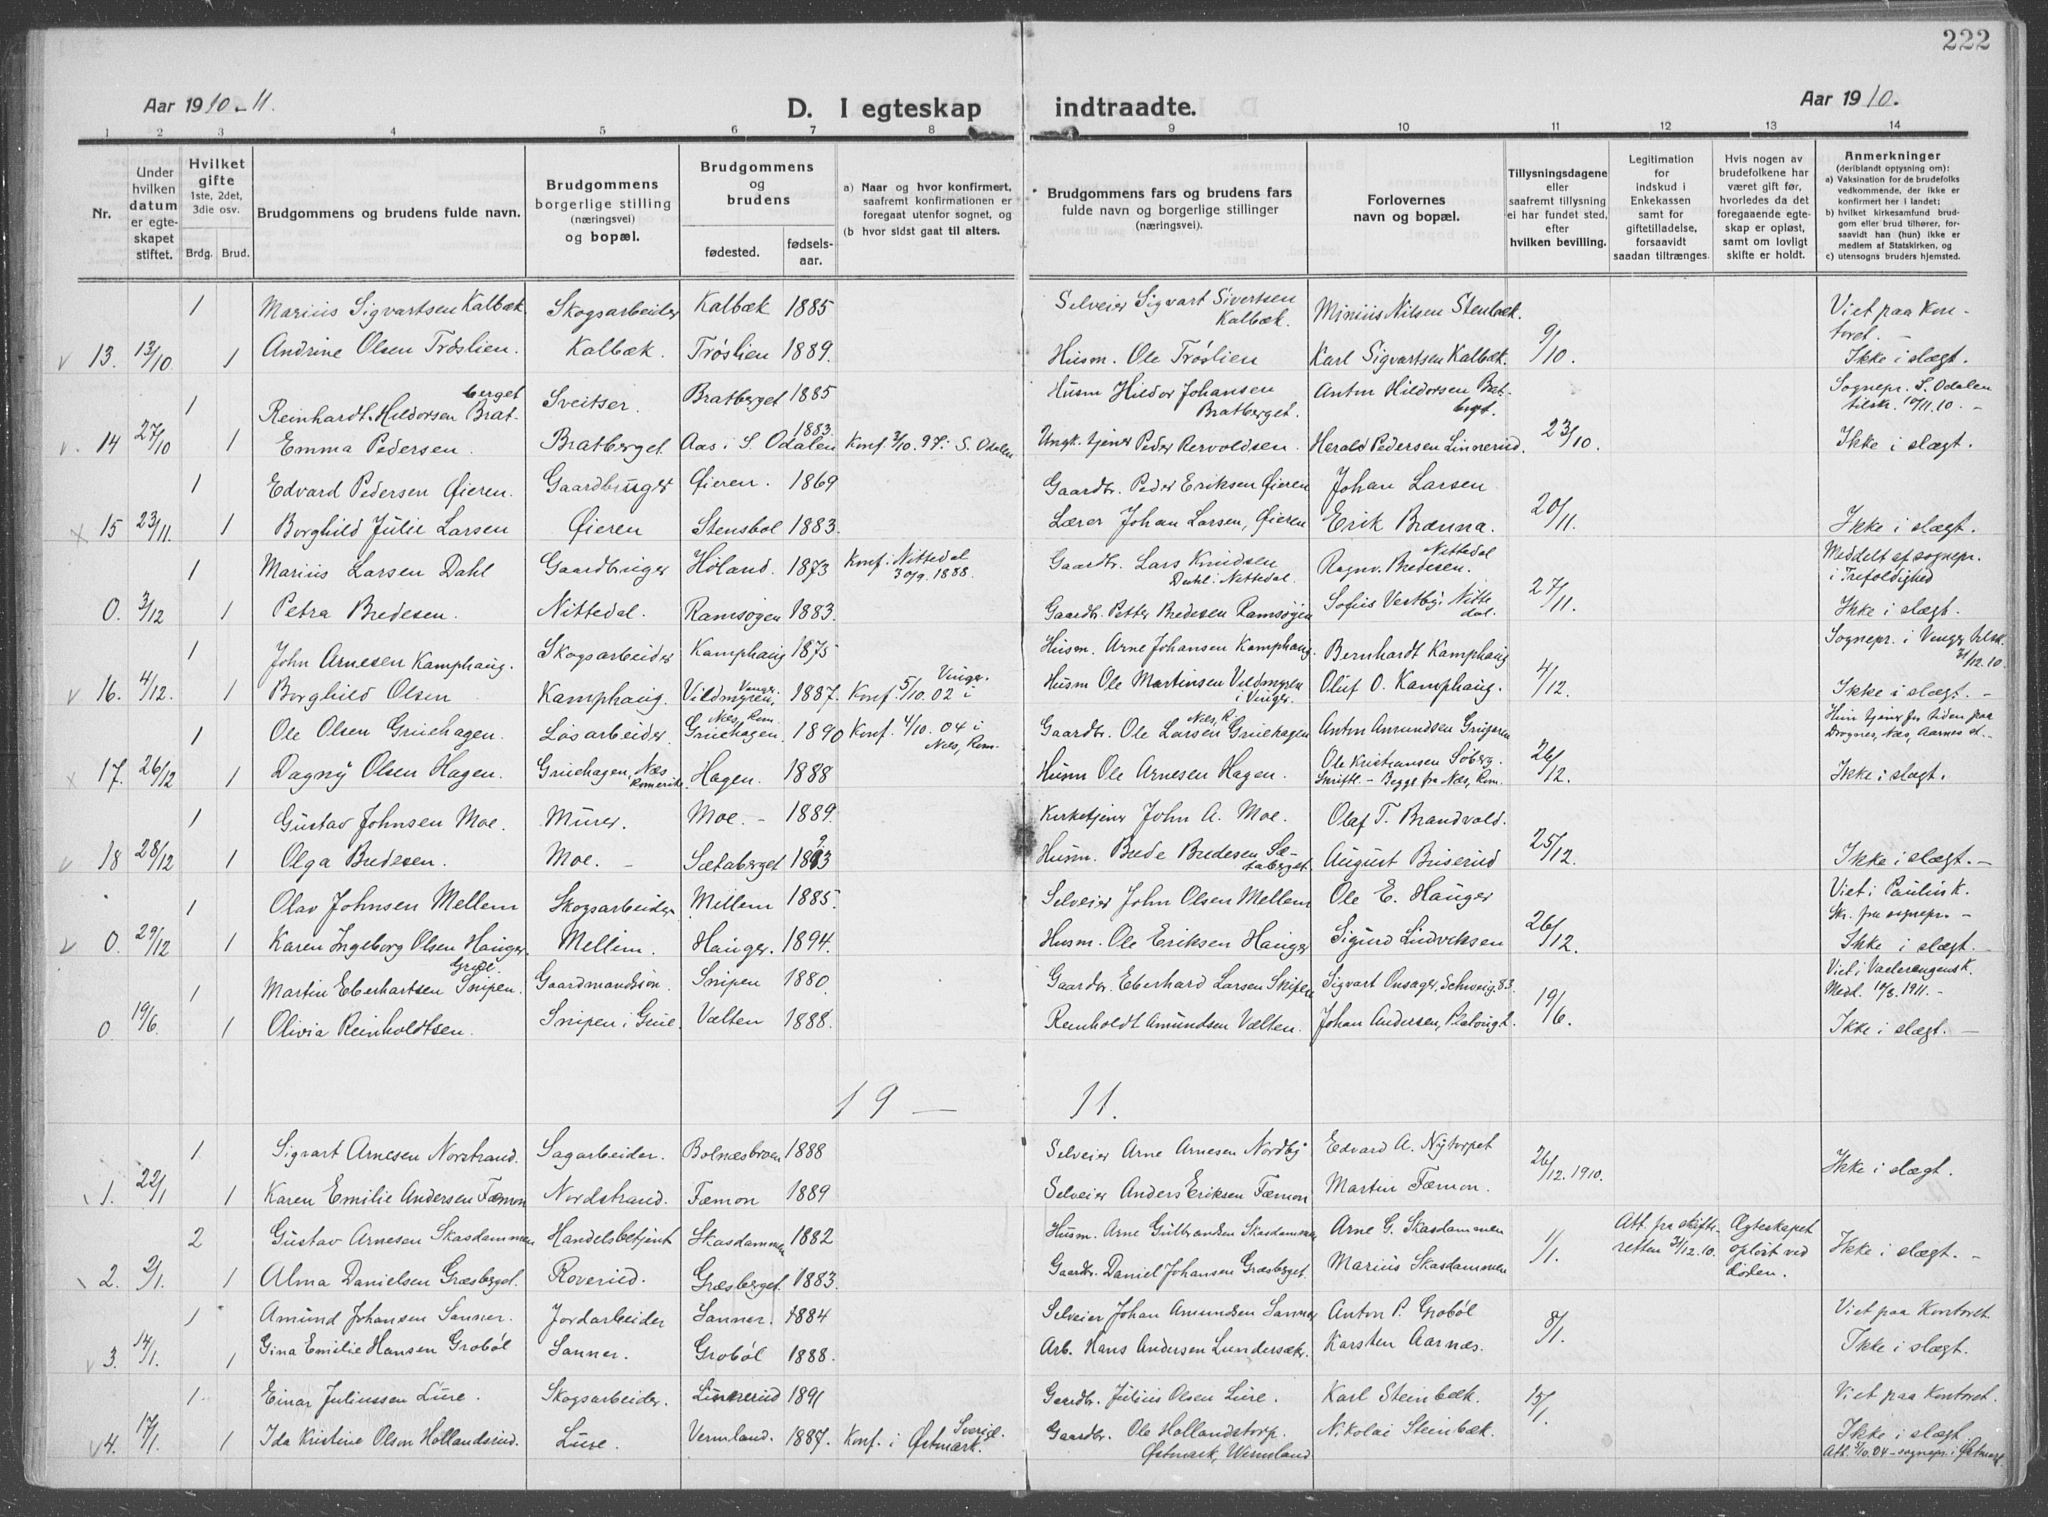 222
Aar 1910-11.
D. I egteskap indtraadte.
Aar 1910.
1 2 3 4 5 6 7 8 9 10 11 12 13 14
Nr.
Under hvilken datum er egteskapet stiftet.
Hvilket gifte 1ste, 2det, 3die osv.
Brdg. Brud.
Brudgommens og brudens fulde navn.
Brudgommens borgerlige stilling (næringsvei) og bopæl.
Brudgommens og brudens
fødested.
fødselsaar.
a) Naar og hvor konfirmert, saafremt konfirmationen er foregaat utenfor sognet, og
(b hvor sidst gaat til alters.
Brudgommens fars og brudens fars fulde navn og borgerlige stillinger (næringsvei).
Forlovernes navn og bopæl.
Tillysningsdagene eller saafremt tillysning ei har fundet sted, efter hvilken bevilling.
Legitimation for indskud i Enkekassen samt for giftetilladelse, forsaavidt saadan tiltrænges.
Hvis nogen av brudefolkene har været gift før, hvorledes da det foregaaende egteskap er opløst, samt om lovligt skifte er holdt.
Anmerkninger (deriblandt optysning om:
a) Vaksination for de brudefolks vedkommende, der ikke er konfirmert her i landet;
b) hvilket kirkesamfund brudgom eller brud tilhører, forsaavidt han (hun) ikke er medlem af Statskirken, og
c) utensogns bruders hjemsted.
1 Marius Sigvartsen Kalbæk Skogsarbeider Kalbæk 1885 Selveier Sigvart Sivertsen Kalbæk. Minius Nilsen Stenbæk. Viet paa Kontoret. -
13. 13/10 1 Andrine Olsen Trøslien. Kalbæk. Trøslien 1889. Husm. Ole Trøslien Karl Sigvartsen Kalbæk 9/10. Ikke i slægt.
1 Reinhardt Hildorsen Bratberget Sveitser. Bratberget 1885 Husm Hildor Johansen Bratberget. Anton Hildorsen Bratbergt. Sognepr. S. Odalen tilskr. 10/11.10. -
14 27/10 1 Emma Pedersen. Bratberget. Aas i S. Odalen 1883. Konf 3/10. 97 i S. Odalen Ungk. tjener Peder Rervoldsen. Herald Pedersen Linnerud. 23/10. Ikke i slægt.
1 Edvard Pedersen Øieren. Gaardbruger Øieren. 1869 Gaardbr. Peder Eriksen Øieren Johan Larsen
15 23/11. 1 Borghild Julie Larsen Øieren Stensbøl 1883. Lærer Johan Larsen, Øieren Erik Brænna. 20/11. Ikke i slægt.
1 Marius Larsen Dahl Gaardbruger Høland. 1873 Konf. i Nittedal 30/9. 1888. Gaardbr. Lars Knudsen Dahl i Nittedal. Ragnv. Bredesen. Nittedal Meddelt af sognepr. i Trefoldighed
0. 3/12 1 Petra Bredesen. Nittedal. Ramsøgen 1883. Gaardbr. Petter Bredesen Ramsøgen Sofus Vestby i Nittedal. 27/11. Ikke i slægt.
1 John Arnesen Kamphaug. Skogsarbeider Kamphaug 1875 Husm. Arne Johansen Kamphaug. Bernhardt Kamphaug Sognepr. i Vinger tilsk. 31/12.10.
16. 4/12. 1 Borghild Olsen Kamphaug. Vildmyren, Vinger. 1887. Konf. 5/10. 02 i Vinger. Husm Ole Martinsen Vildmyren i Vinger. Oluf O. Kamphaug. 4/12. Ikke i slægt. -
1 Ole Olsen Gruehagen. Løsarbeider. Gruehagen. Næs, Rom. 1890 Konf. 4/10. 04 i Næs, Rom. Gaardbr. Ole Larsen Gruehagen Næs, R. Anton Amundsen Hun tjener for tiden paa Drognes, Næs, Aarnes st.-
17. 26/12 1 Dagny Olsen Hagen. Gruehagen, Næs Romerike. Hagen. 1888 Husm Ole Arnesen Hagen. Ole Kristiansen Søberg. - Begge fra Næs, Rom. 26/12. Ikke i slægt.
1 Gustav Johnsen Moe. Murer. Moe. - 1889. Kirketjener John A. Moe. Olaf T. Brandvold.
18 28/12 1 Olga Bredesen. Moe. - Sætaberget 1893 Husm. Brede Bredesen Sætaberget. August Buserud 25/12. Ikke i slægt. -
1 Olav Johnsen Mellem Skogsarbeider Mellem 1885. Selveier John Olsen Mellem Ole E. Hauger Viet i Paulus k. Sk. fra sognepr. -
0. 29/12 1 Karen Ingeborg Olsen Hauger Mellem. Hauger. 1894. Husm. Ole Eriksen Hauger Sigurd Lindviksen 26/12. Ikke i slægt. -
1 Martin Eberhartsen Snipen. Grue. Gaardmandssøn. Snipen 1880 Gaardbr. Eberhard Larsen Skipen Sigvart Onsager, Schweig. 83. Viet i Vaalerengens K. Medl. 10/3. 1911. -
0 19/6 1 Olivia Reinholdtsen. Snipen i Grue. Vælten 1888. Reinholdt Amundsen Vælten. Johan Andersen, 19/6. Ikke i slægt. -
19 - 11.
1 Sigvart Arnesen Norstrand. Sagarbeider. Bolnæsbroen 1888 Selveier Arne Arnesen Nordby Edvard A. Nytorpet
1. 22/1 1 Karen Emilie Andersen Fæmon Nordstrand. Fæmon 1889 Selveier Anders Eriksen Fæmon Martin Fæmon. 26/12. 1910. Ikke i slægt.
2 Gustav Arnesen Skasdammen Handelsbetjent Skasdammen 1882 Husm. Arne Gulbrandsen Skasdammen Arne G. Skasdammen Att. fra skifteretten 31/12.10. Ægteskapet opløst ved døden.
2. 2/1 1 Alma Danielsen Græsberget. Roverud. Græsberget. 1883. Gaardbr. Daniel Johansen Græsberget. Marius Skasdammen 1/1. Ikke i slægt. -
1 Amund Johansen Sanner. Jordarbeider Sanner. 1884 Selveier Johan Amundsen Sanner Anton P. Grobøl Viet paa Kontoret.
3. 14/1. 1 Gina Emilie Hansen Grobøl Sanner. Grobøl 1888. Arb. Hans Andersen Lundersæter Karsten Aarnæs. 8/1. Ikke i slægt.
1 Einar Juliussen Lure. Skogsarbeider. Linnerud 1891 Gaardbr. Julius Olsen Lure. Karl Steinbæk Viet paa Kontoret.
4. 17/1. 1 Ida Kristine Olson Hollandsrud. Lure. Vermland. 1887. Konf. i Østmark. Sverig. Gaardbr. Ole Hollandstorp. Østmark, Wermland Nikolai Steinbæk. 15/1. Ikke i slægt.
Att. 3/10.04 - sognepr. i Østmark